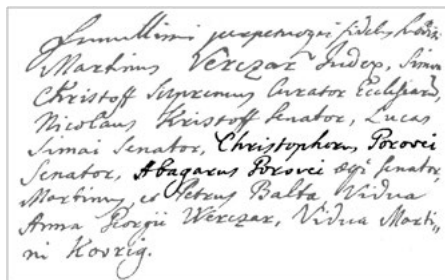 humillimi perpetuoque fideles
Martinus Verczar Judex, Simon
Christoff Supremus Curator Ecclesiarū,
Nicolaus Kristoff Senator, Lucas
Simai Senator, Christophorus Porovei
Senator, Abagarus Porovei Senator,
Martinus, et Petrus Balta Vidua
Anna Georgii Werczar, Vidua Marti„
ni Kovrig.